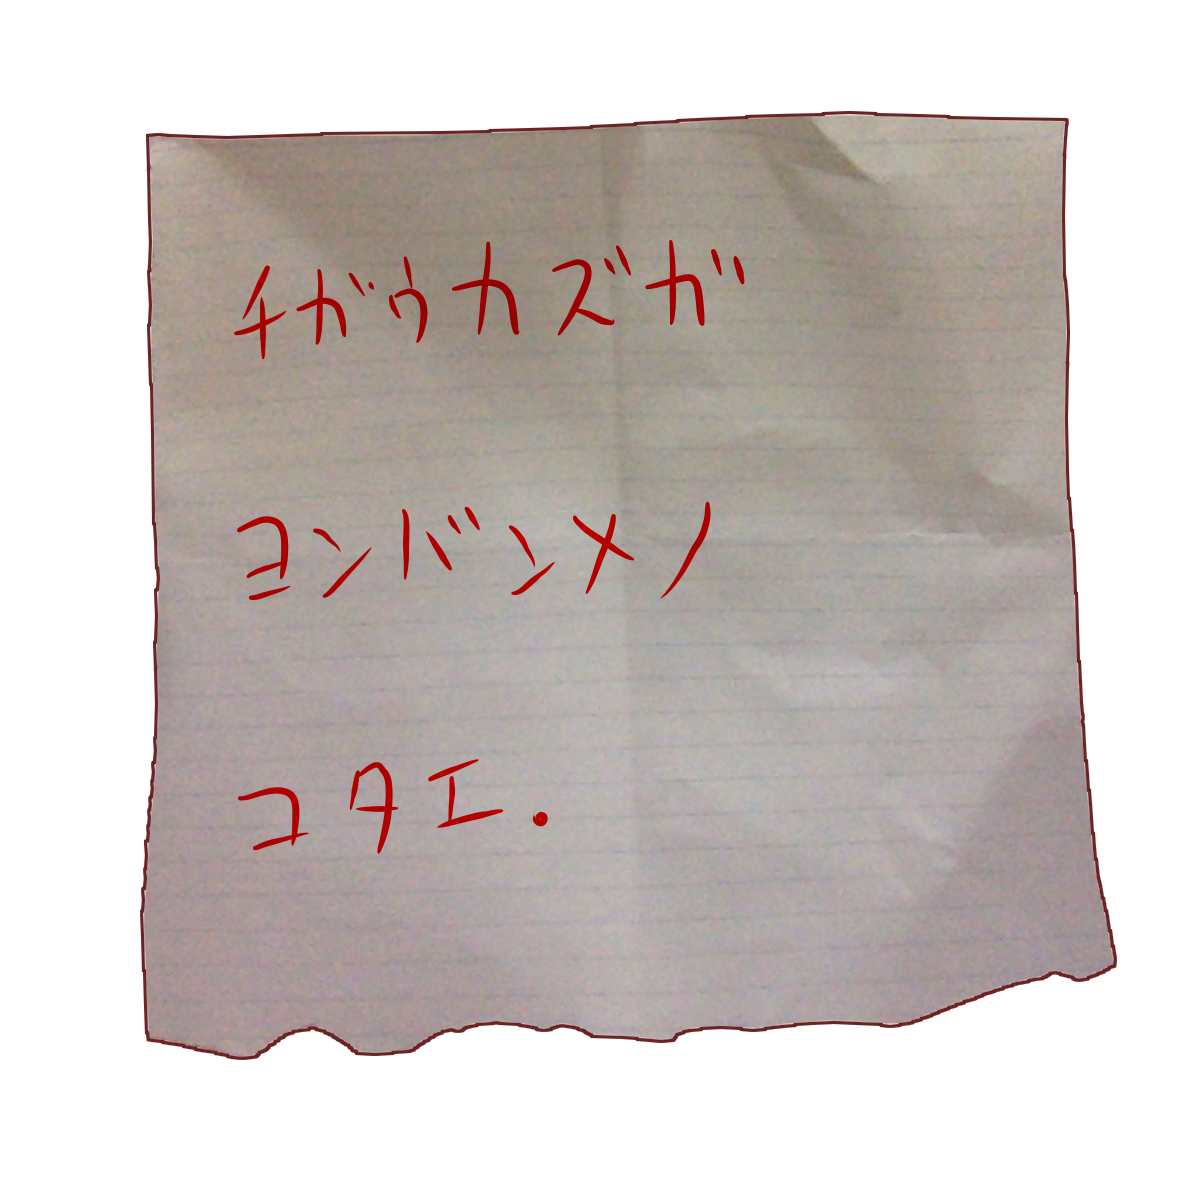 チガウカズガ
ヨンバンメノ
コタエ.